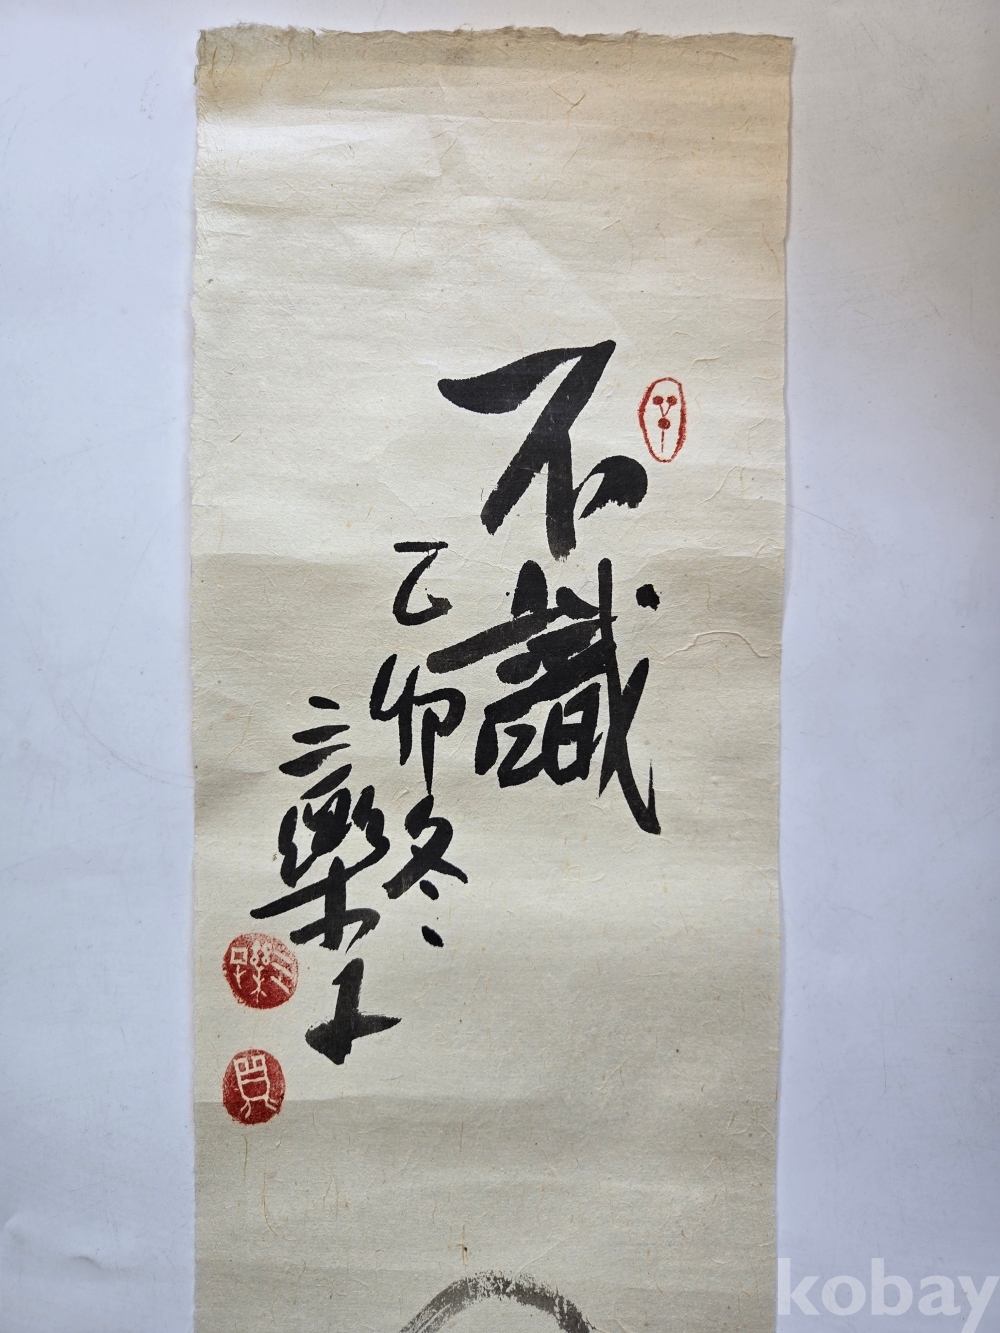 不識
乙卯冬
三樂士
kobay